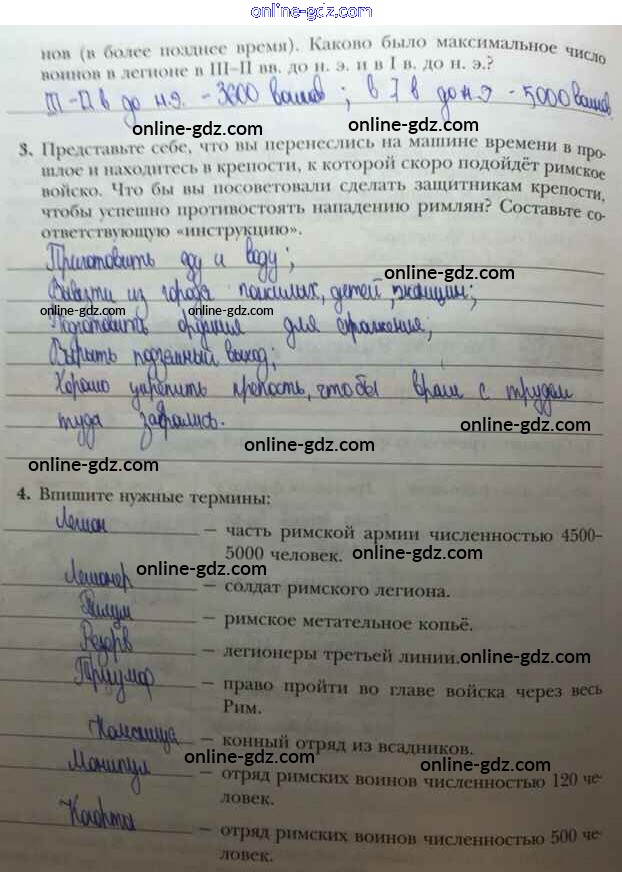 online-gdz.com
нов (в более позднее время). Каково было максимальное число
воинов в легионе в III–II вв. до н. э. и в I в. до н. э.?
III - II в до н.э. - 3600 воинов ; в I в до н.э - 5000 воинов.
online-gdz.com online-gdz.com
3. Представьте себе, что вы перенеслись на машине времени в про-
шлое и находитесь в крепости, к которой скоро подойдёт римское
войско. Что бы вы посоветовали сделать защитникам крепости,
чтобы успешно противостоять нападению римлян? Составьте со-
ответствующую «инструкцию».
Приготовить еду и воду;
online-gdz.com
Вывезти из города пожилых, детей, женщин;
online-gdz.com online-gdz.com
Подготовить орудия для сражения;
Вырыть подземный выход;
Хорошо укрепить крепость, чтобы враги с трудом
туда забрались.
online-gdz.com
online-gdz.com
4. Впишите нужные термины:
Легион — часть римской армии численностью 4500–
5000 человек. online-gdz.com
online-gdz.com
Легионер — солдат римского легиона.
Пилум — римское метательное копьё.
Резерв — легионеры третьей линии. online-gdz.com
Триумф — право пройти во главе войска через весь
Рим.
Конница — конный отряд из всадников.
online-gdz.com online-gdz.com
Манипул — отряд римских воинов численностью 120 че-
ловек.
Когорта — отряд римских воинов численностью 500 че-
ловек.